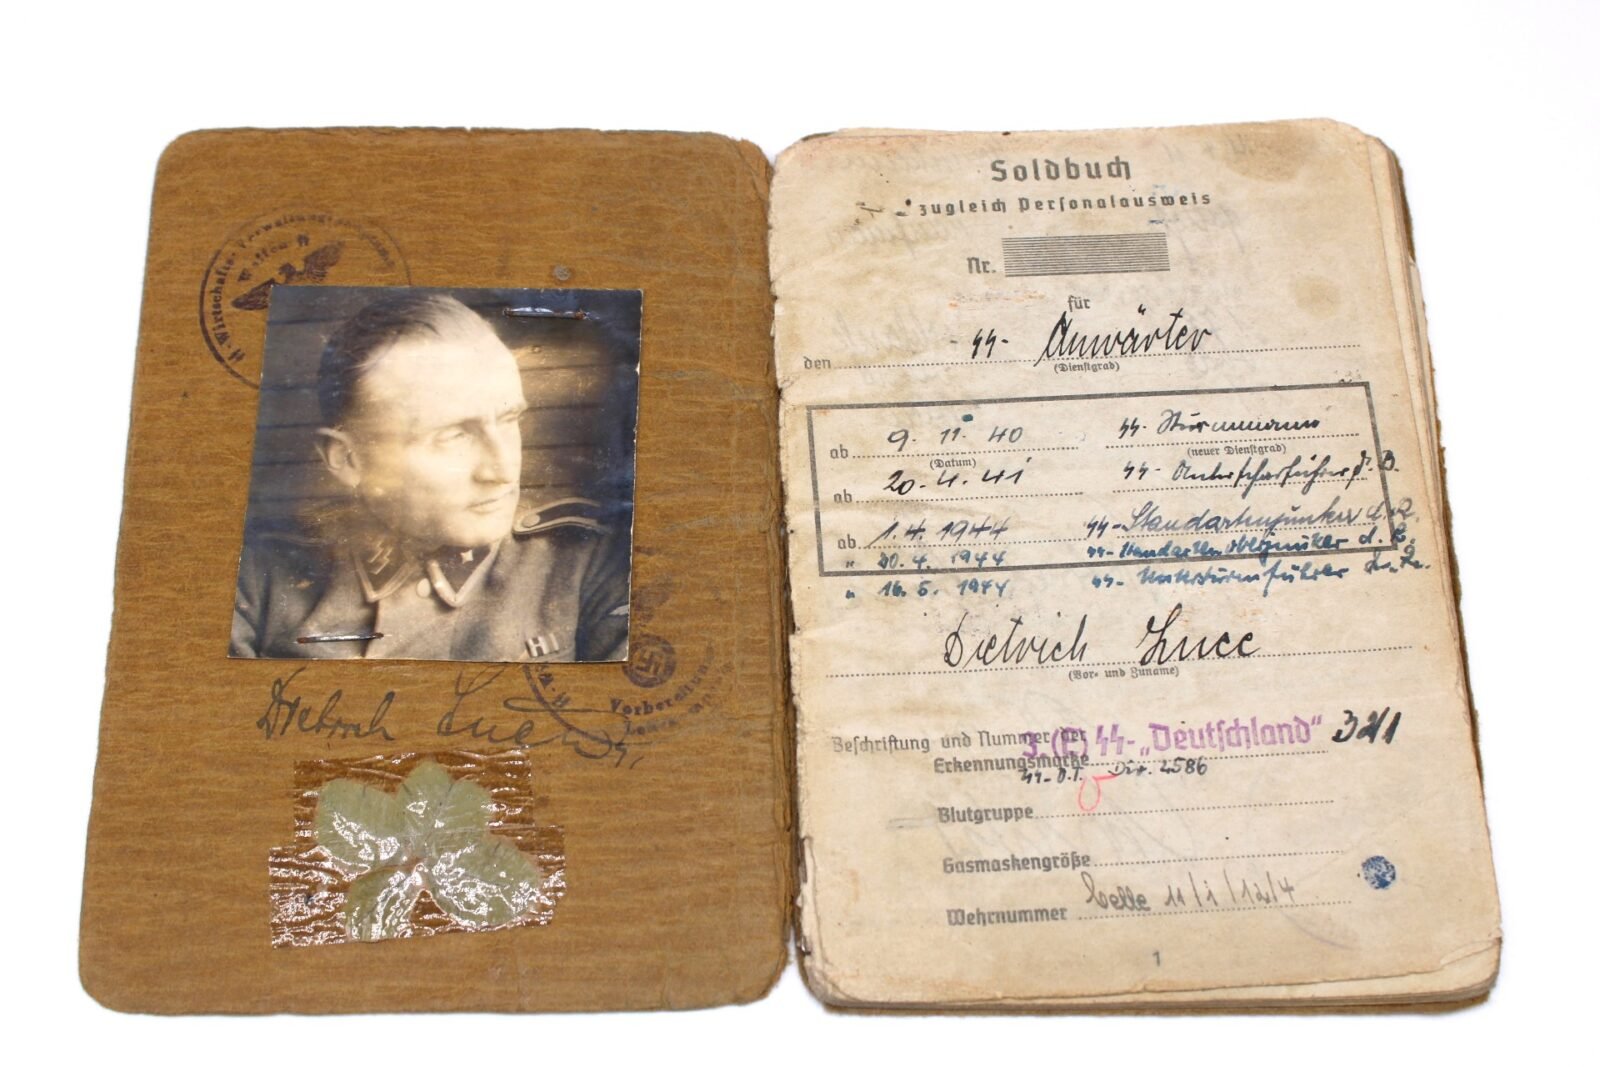 ϟϟ-Wirtschafts-Verwaltungshauptamt
Waffen ϟϟ
Dietrich
Vorbereitungs
Soldbuch
zugleich Personalausweis
Nr.
für
den -ϟϟ- Anwärter
(Dienstgrad)
ab 9. 11. 40 ϟϟ- Sturmmann
(Datum) (neuer Dienstgrad)
ab 20. 4. 41 ϟϟ- Unterscharführer d. R.
ab 1. 4. 1944 ϟϟ-Standartenjunker d. R.
" 20. 4. 1944 ϟϟ-Standartenoberjunker d. R.
" 16. 5. 1944 ϟϟ- Untersturmführer d. R.
Dietrich
(Vor- und Zuname)
Beschriftung und Nummer der 3.(E) ϟϟ-„Deutschland" 321
Erkennungsmarke
2586
Blutgruppe
Gasmaskengröße
Wehrnummer Celle 11/1/12/4
1